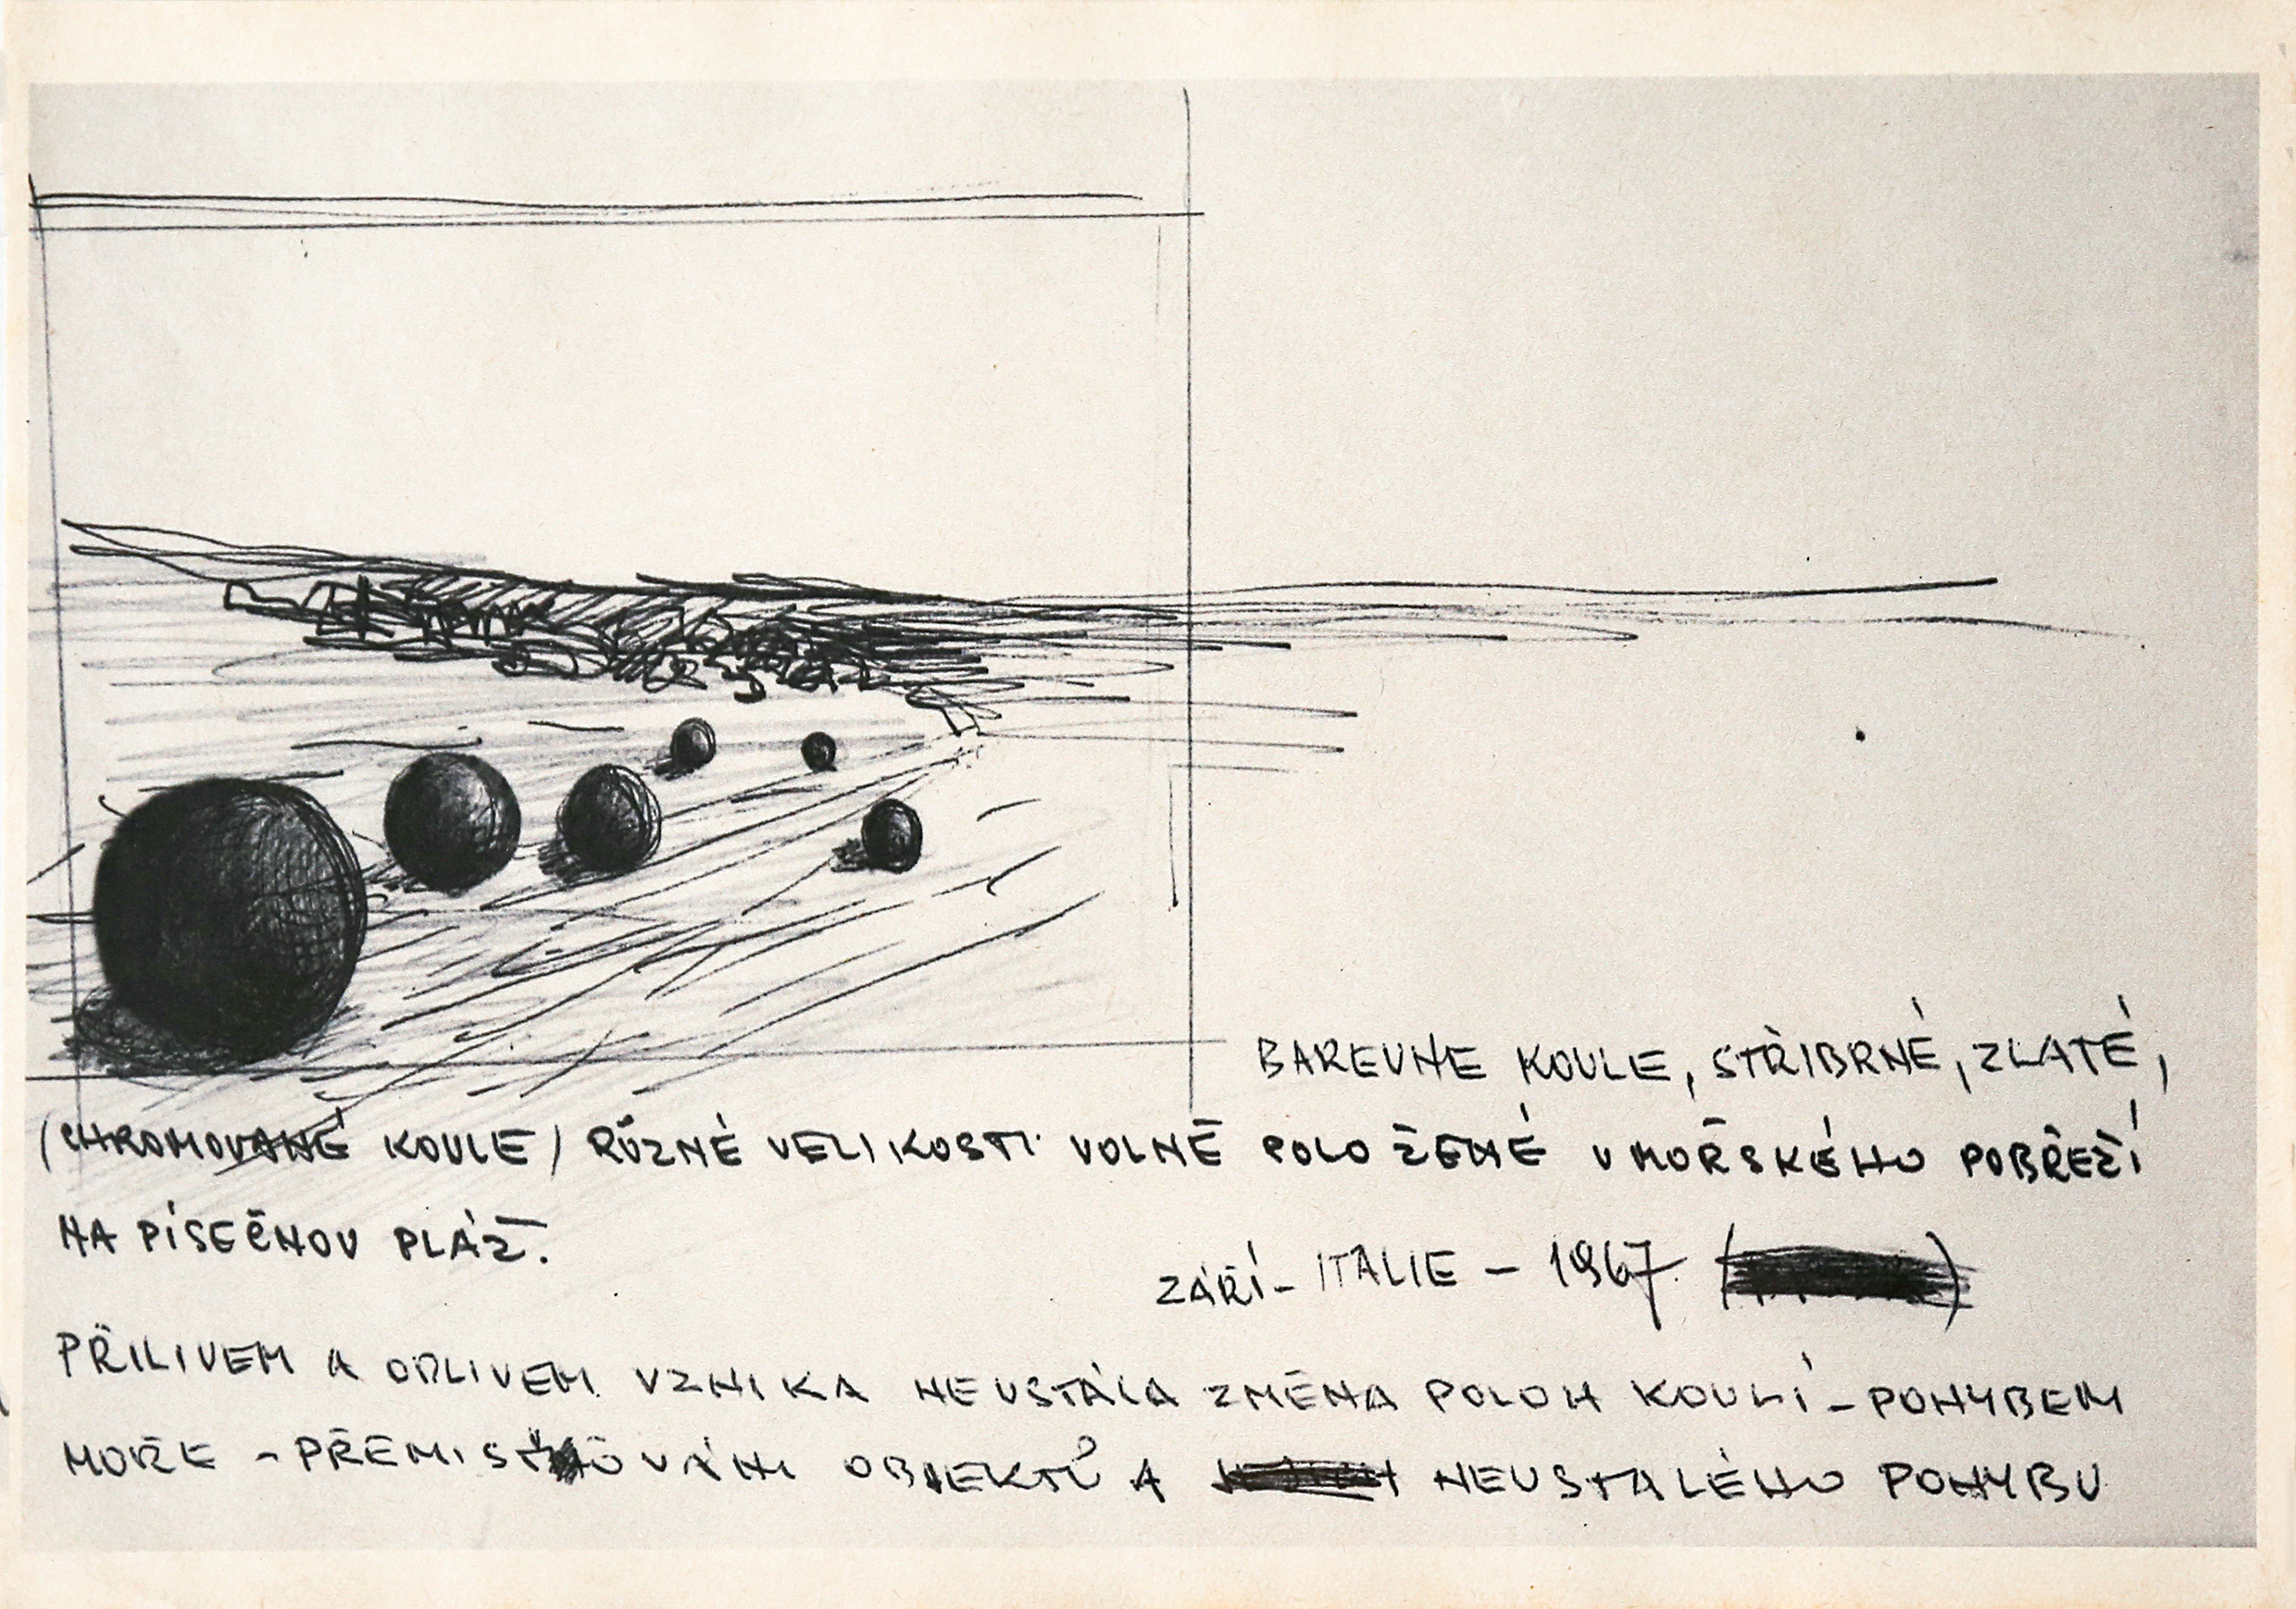 BAREVNE KOULE, STŘIBRNÉ, ZLATÉ,
(CHROMOVANÉ KOULE) RŮZNÉ VELIKOSTI VOLNĚ POLOŽENÉ U MOŘSKÉHO POBŘEŽÍ
NA PÍSEČNOU PLÁŽ.
ZÁŘÍ - ITÁLIE - 1967
PŘILIVEM A ODLIVEM VZNIKA NEUSTÁLA ZMĚNA POLOH KOULÍ - POHYBEM
MOŘE - OBJEKTŮ A NEUSTALÉHO POHYBU